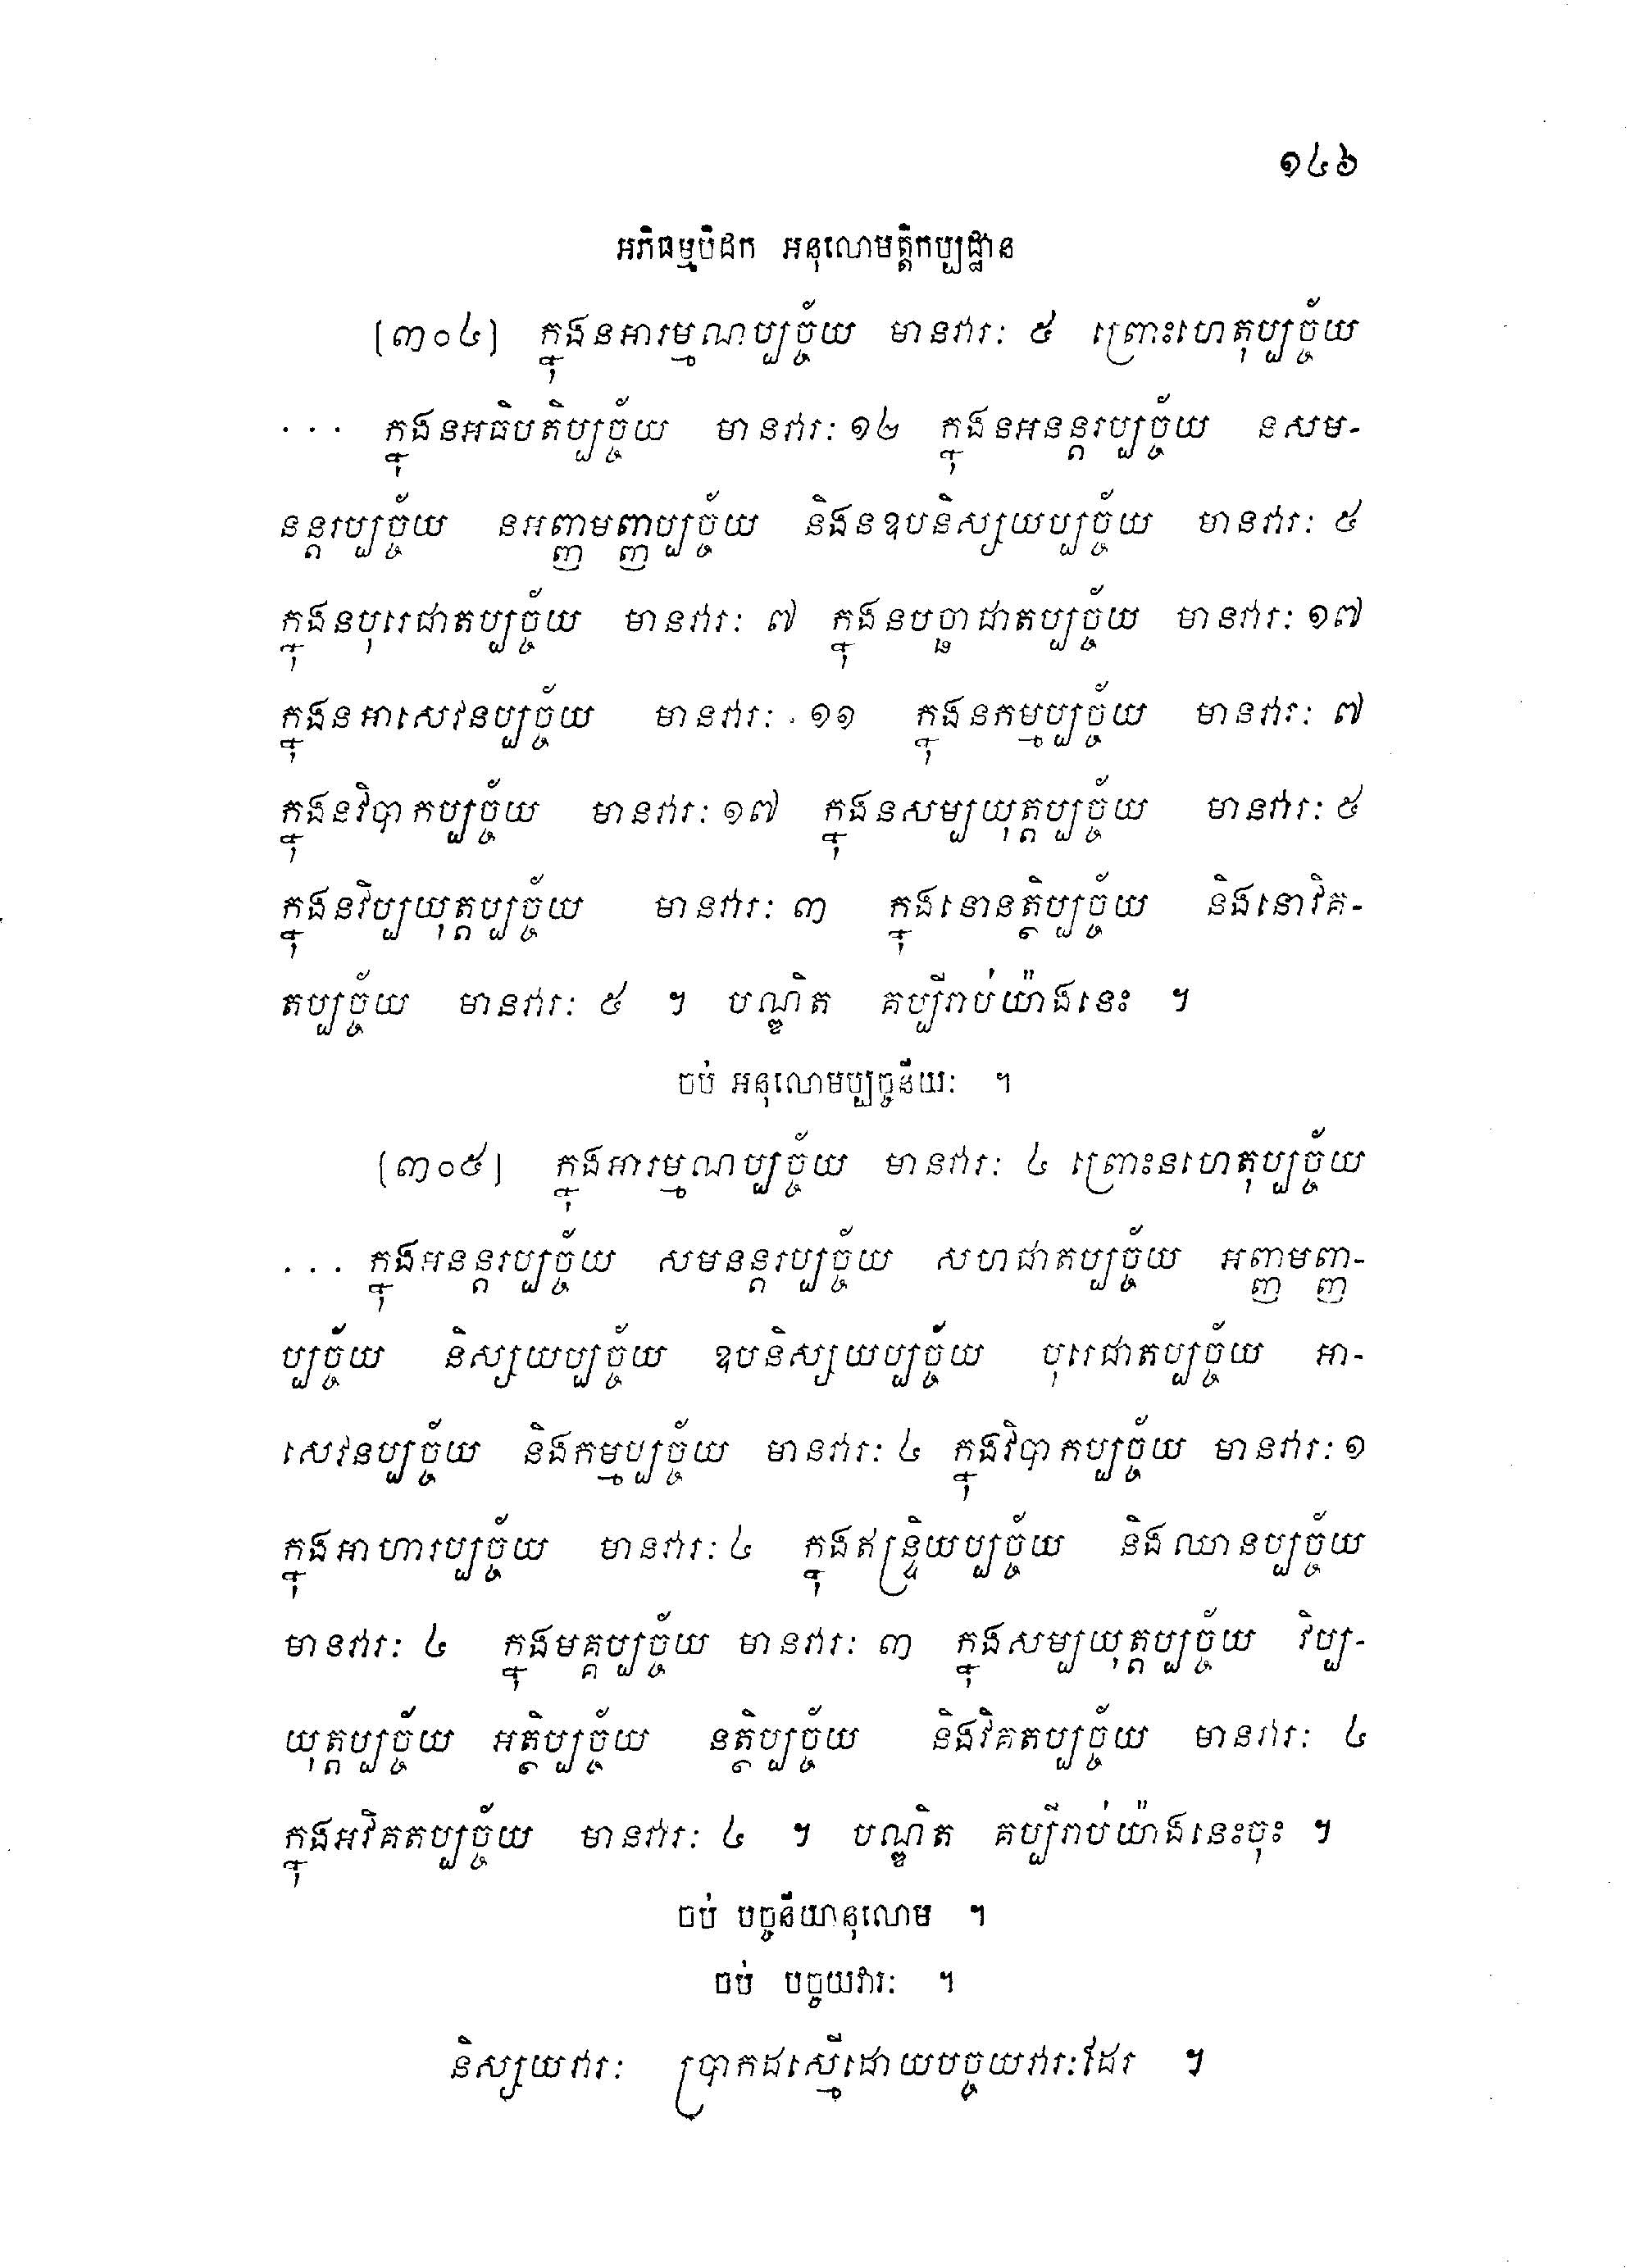 ១៤៦
អភិធម្មបិដក អនុលោមត្តិកប្បដ្ឋាន
[៣០៤] ក្នុងនអារម្មណប្បច្ច័យ មានវារៈ ៥ ព្រោះហេតុប្បច្ច័យ
... ក្នុងនអធិបតិប្បច្ច័យ មានវារៈ ១២ ក្នុងនអនន្តរប្បច្ច័យ នសម-
នន្តរប្បច្ច័យ នអញ្ញមញ្ញប្បច្ច័យ និងនឧបនិស្សយប្បច្ច័យ មានវារៈ ៥
ក្នុងនបុរេជាតប្បច្ច័យ មានវារៈ ៧ ក្នុងនបច្ឆាជាតប្បច្ច័យ មានវារៈ ១៧
ក្នុងនអាសេវនប្បច្ច័យ មានវារៈ ១១ ក្នុងនកម្មប្បច្ច័យ មានវារៈ ៧
ក្នុងនវិបាកប្បច្ច័យ មានវារៈ ១៧ ក្នុងនសម្បយុត្តប្បច្ច័យ មានវារៈ ៥
ក្នុងនវិប្បយុត្តប្បច្ច័យ មានវារៈ ៣ ក្នុងនោនត្ថិប្បច្ច័យ និងនោវិគ-
តប្បច្ច័យ មានវារៈ ៥ ។ បណ្ឌិត គប្បីរាប់យ៉ាងនេះ ។
ចប់ អនុលោមប្បច្ចនីយៈ ។
[៣០៥] ក្នុងអារម្មណប្បច្ច័យ មានវារៈ ៤ ព្រោះនហេតុប្បច្ច័យ
... ក្នុងអនន្តរប្បច្ច័យ សមនន្តរប្បច្ច័យ សហជាតប្បច្ច័យ អញ្ញមញ្ញ-
ប្បច្ច័យ និស្សយប្បច្ច័យ ឧបនិស្សយប្បច្ច័យ បុរេជាតប្បច្ច័យ អា-
សេវនប្បច្ច័យ និងកម្មប្បច្ច័យ មានវារៈ ៤ ក្នុងវិបាកប្បច្ច័យ មានវារៈ ១
ក្នុងអាហារប្បច្ច័យ មានវារៈ ៤ ក្នុងឥន្ទ្រិយប្បច្ច័យ និងឈានប្បច្ច័យ
មានវារៈ ៤ ក្នុងមគ្គប្បច្ច័យ មានវារៈ ៣ ក្នុងសម្បយុត្តប្បច្ច័យ វិប្ប-
យុត្តប្បច្ច័យ អត្ថិប្បច្ច័យ នត្ថិប្បច្ច័យ និងវិគតប្បច្ច័យ មានវារៈ ៤
ក្នុងអវិគតប្បច្ច័យ មានវារៈ ៤ ។ បណ្ឌិត គប្បីរាប់យ៉ាងនេះចុះ ។
ចប់ បច្ចនីយានុលោម ។
ចប់ បច្ចយវារៈ ។
និស្សយវារៈ ប្រាកដស្មើដោយបច្ចយវារៈដែរ ។